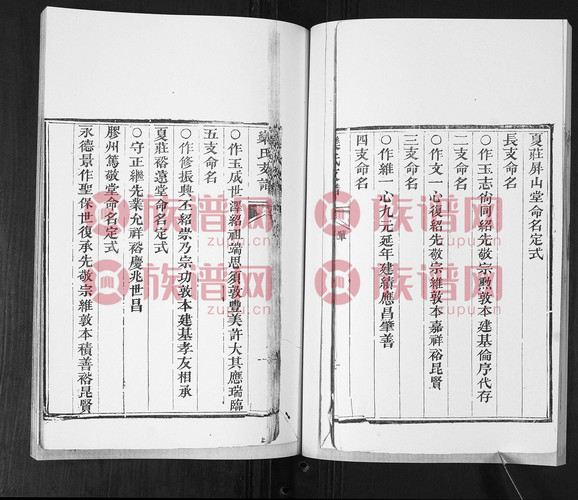 夏莊屏山堂命名定式
長支命名
○作玉志尚同紹先敬宗勲敦本建基倫序代存
二支命名
○作文一心復紹先敬宗維敦本嘉祥裕昆賢
三支命名
○作維一心九元延年建績應昌肇善
四支命名
單
欒氏支譜
○作玉成世澤紹祖端思須敦豐美許大其應瑞臨
五支命名
○作修振興丕紹崇乃宗功敦本建基孝友相承
夏莊裕遠堂命名定式
○守正繼先業允祥裕慶兆世昌
膠州篤敬堂命名定式
永德景作聖保世復承先敬宗維敦本積善裕昆賢
族谱网
zupu.cn
族谱网
zupu.cn
族谱网
zupu.cn
族谱网
zupu.cn